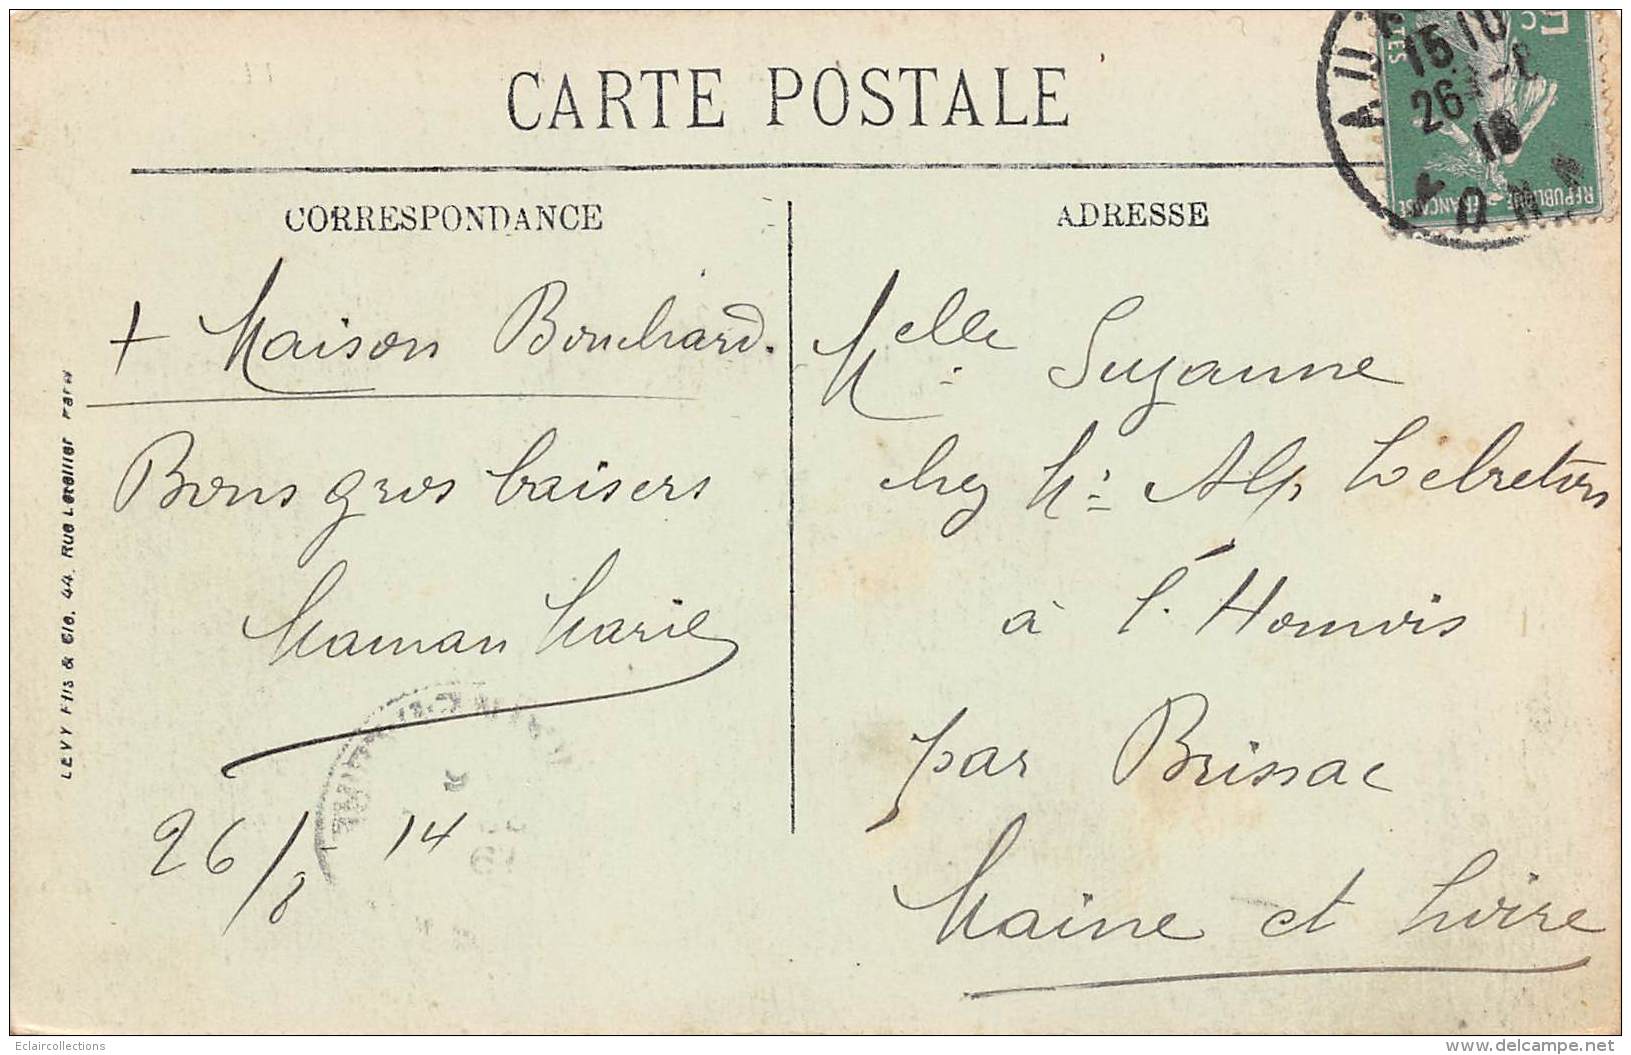 CARTE POSTALE
CORRESPONDANCE
+ Maison Bouchard.
Bons gros baisers
Maman Marie
26/8 14
LEVY Fils & Cie. 44. Rue Letellier Paris
ADRESSE
Melle Suzanne
chez Mr Alp Lebreton
à l'Homois
par Brissac
Maine et Loire
15 10
26
RÉPUBLIQUE FRANÇAISE
5c
Eclaircollections
delcampe.net